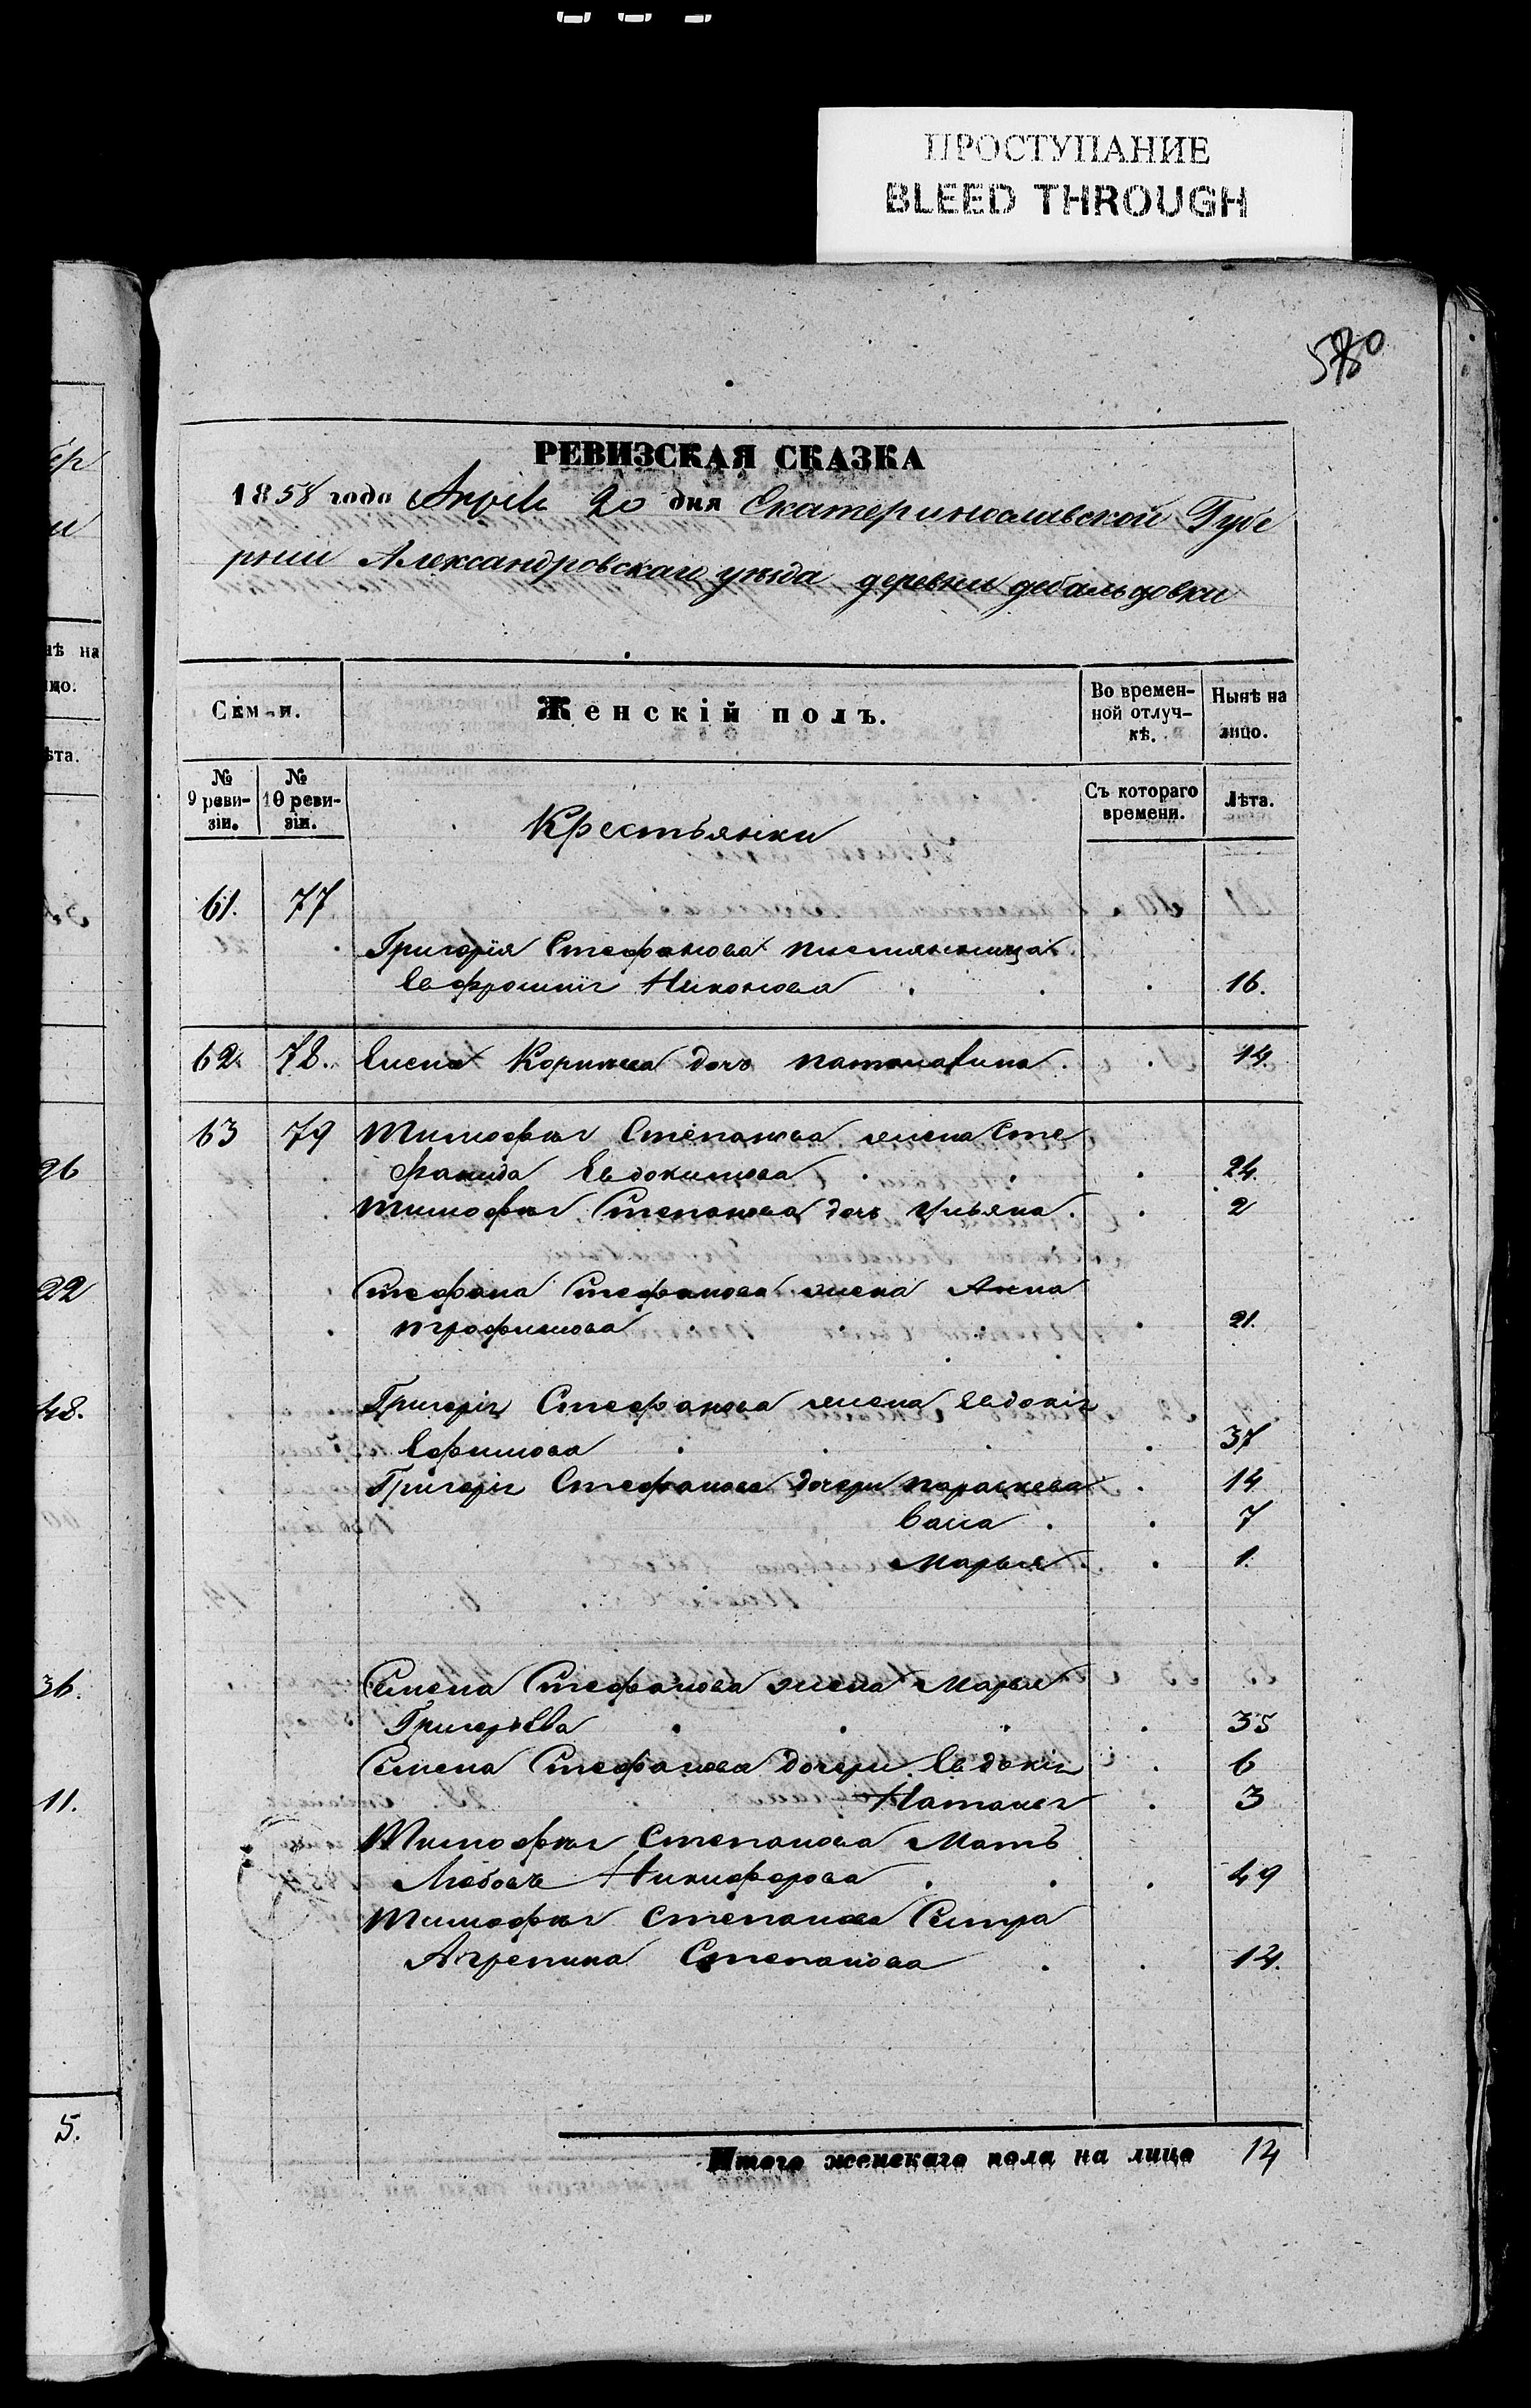 ПРОСТУПАНИЕ
BLEED THROUGH
580
РЕВИЗСКАЯ СКАЗКА
1858 года Апрель 20 дня Екатеринославской Губе
рніи Александровскаго уезда деревни дебальцовки
Семьи.
Женскій полъ.
Во времен-
ной отлуч-
кѣ.
Нынѣ на
лицо.
№
9 реви-
зіи.
№
10 реви-
зіи.
Съ котораго
времени.
Лѣта.
Крестьянки
61. 77
Григорія Стефанова
Евфросинія Никонова 16.
62. 78. дочь 14.
63 79 Тимофея Степанова жена Сте
фанида Евдокимова 24.
Тимофея Степанова дочь Ульяна 2
Стефана Стефанова жена Анна
Трофимова 21.
Григорія Стефанова жена Евдокія
Ефимова 37
Григорія Стефанова дочери Параскева 14
Васса 7
Марья 1.
Семена Стефанова жена Марья
Григорьева 35
Семена Стефанова дочери Евдокія 6
Наталія 3
Тимофея Степанова Мать
Любовь Никифорова 49
Тимофея Степанова Сестра
Агрепина Степанова 14.
Итого женскаго пола на лицо 14
нѣ на
цо.
ѣта.
26
22
48.
36.
11.
5.